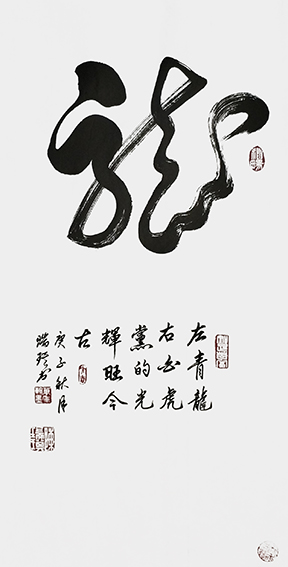 龍
左青龍
右白虎
黨的光
輝旺今
古
庚子秋月